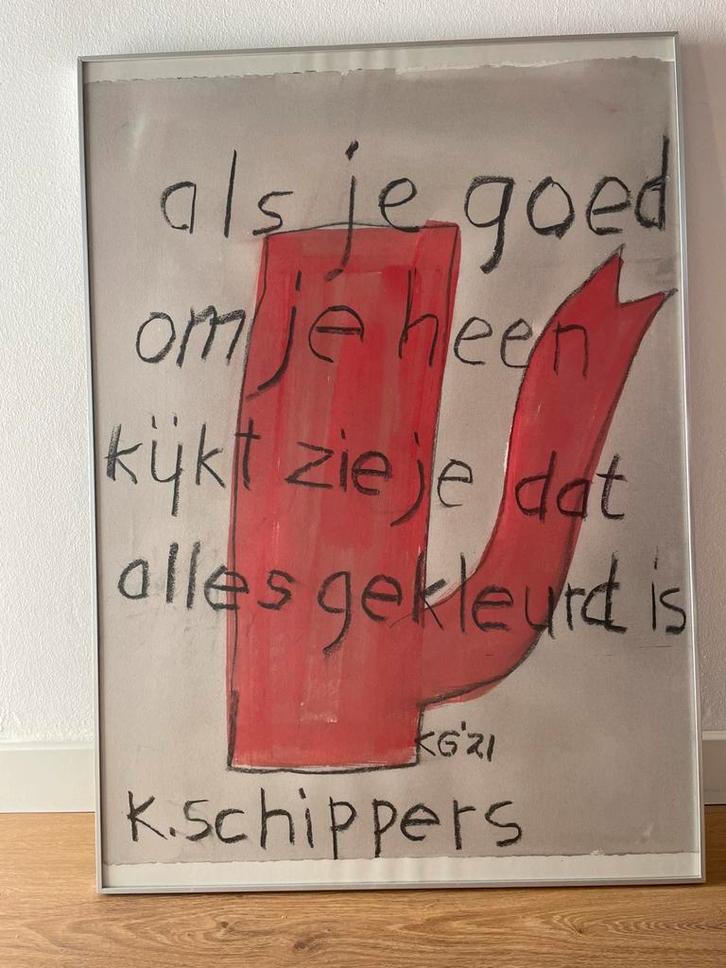 als je goed
om je heen
kijkt zie je dat
alles gekleurd is
KG'21
K. schippers